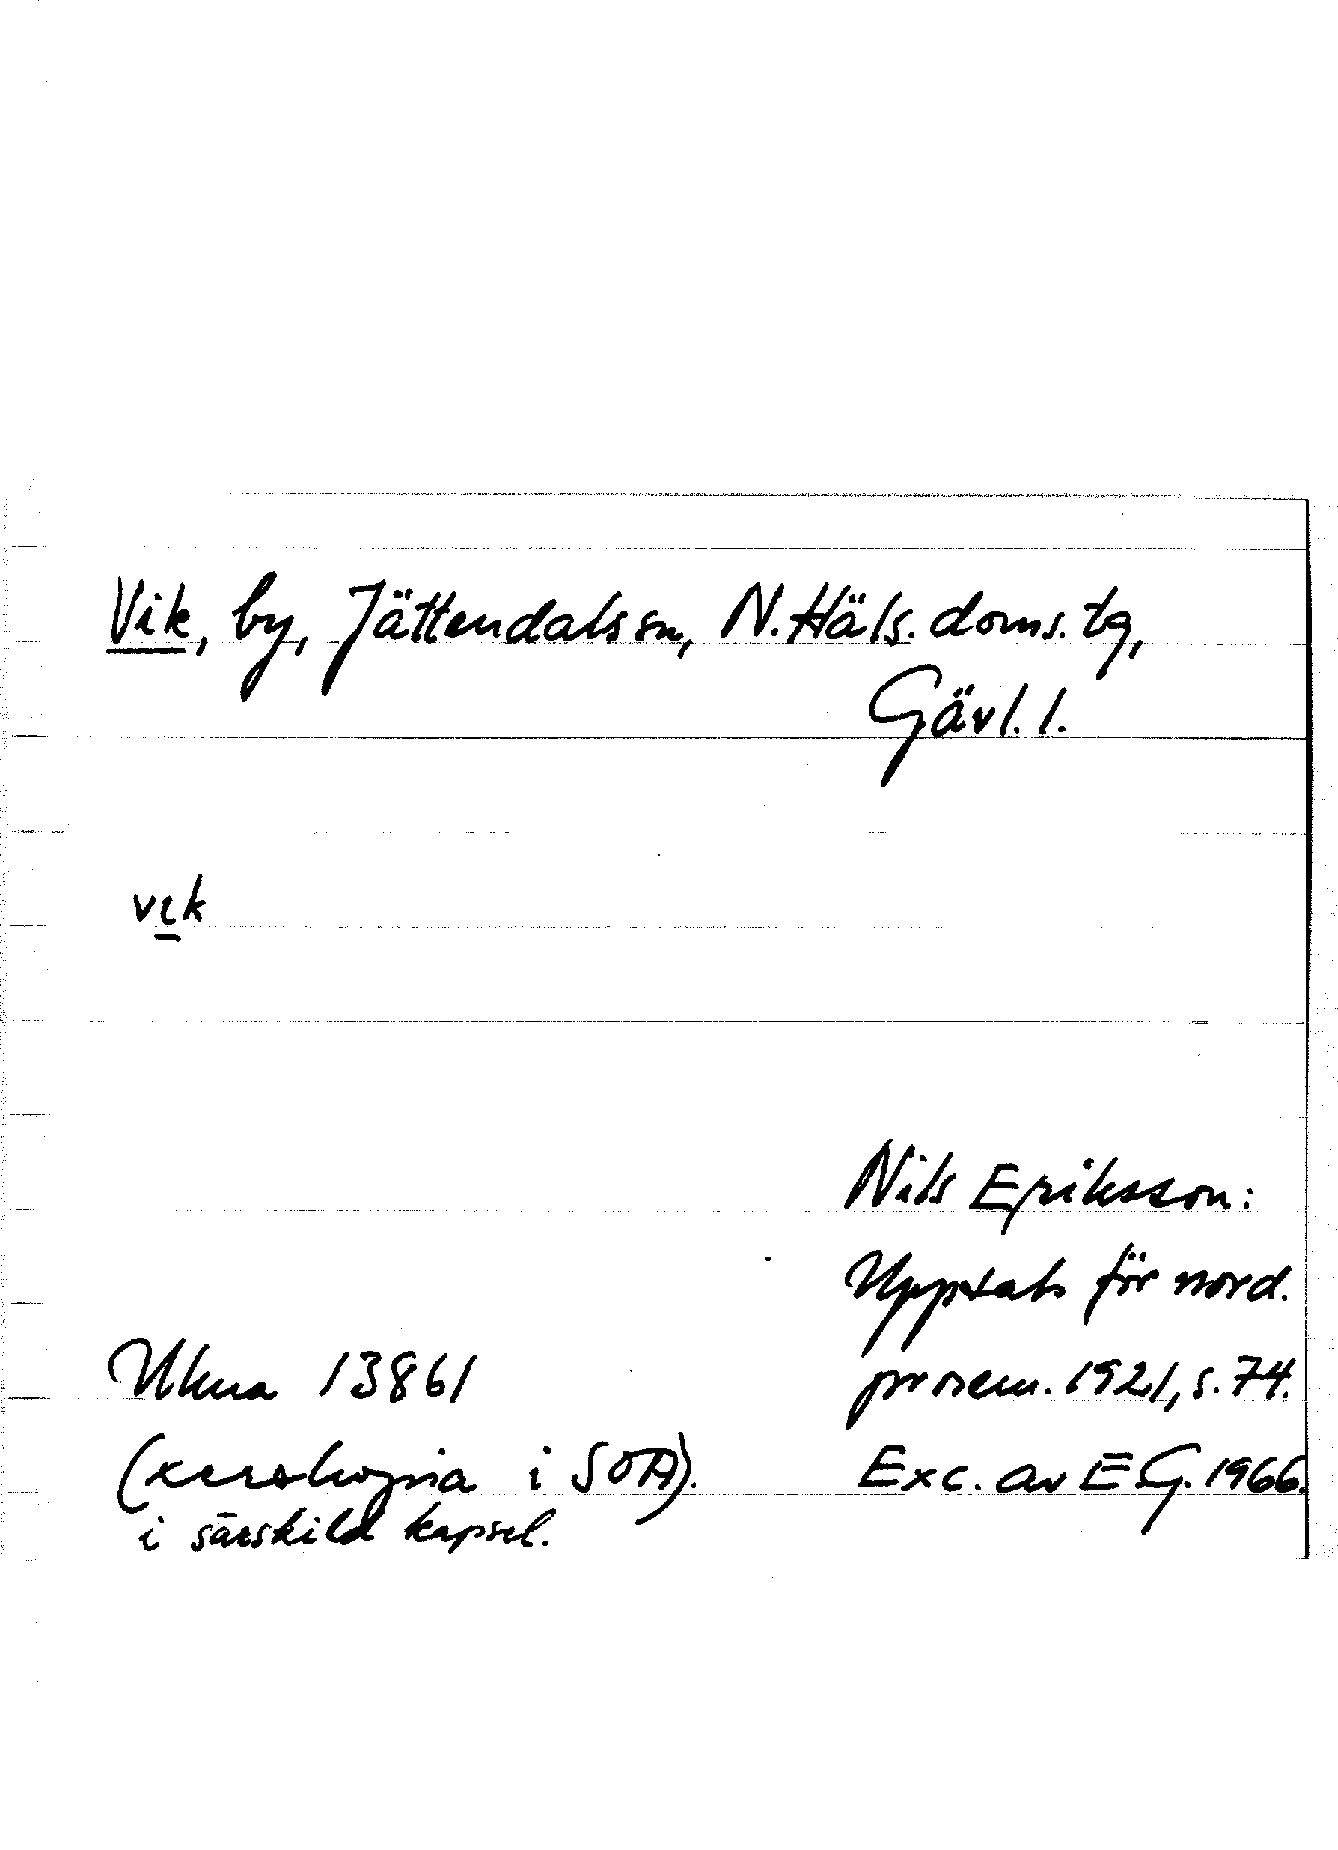 Vik, by, Jättendals sn, N. Häls. doms. tg,
Gävl. l.
vɩk
Nils Eriksson:
Uppsats för nord.
prosem. 1921, s. 74.
Ulma 13861
(xeroxkopia i SOA).
Exc. av E G. 1966.
i särskild kapsel.